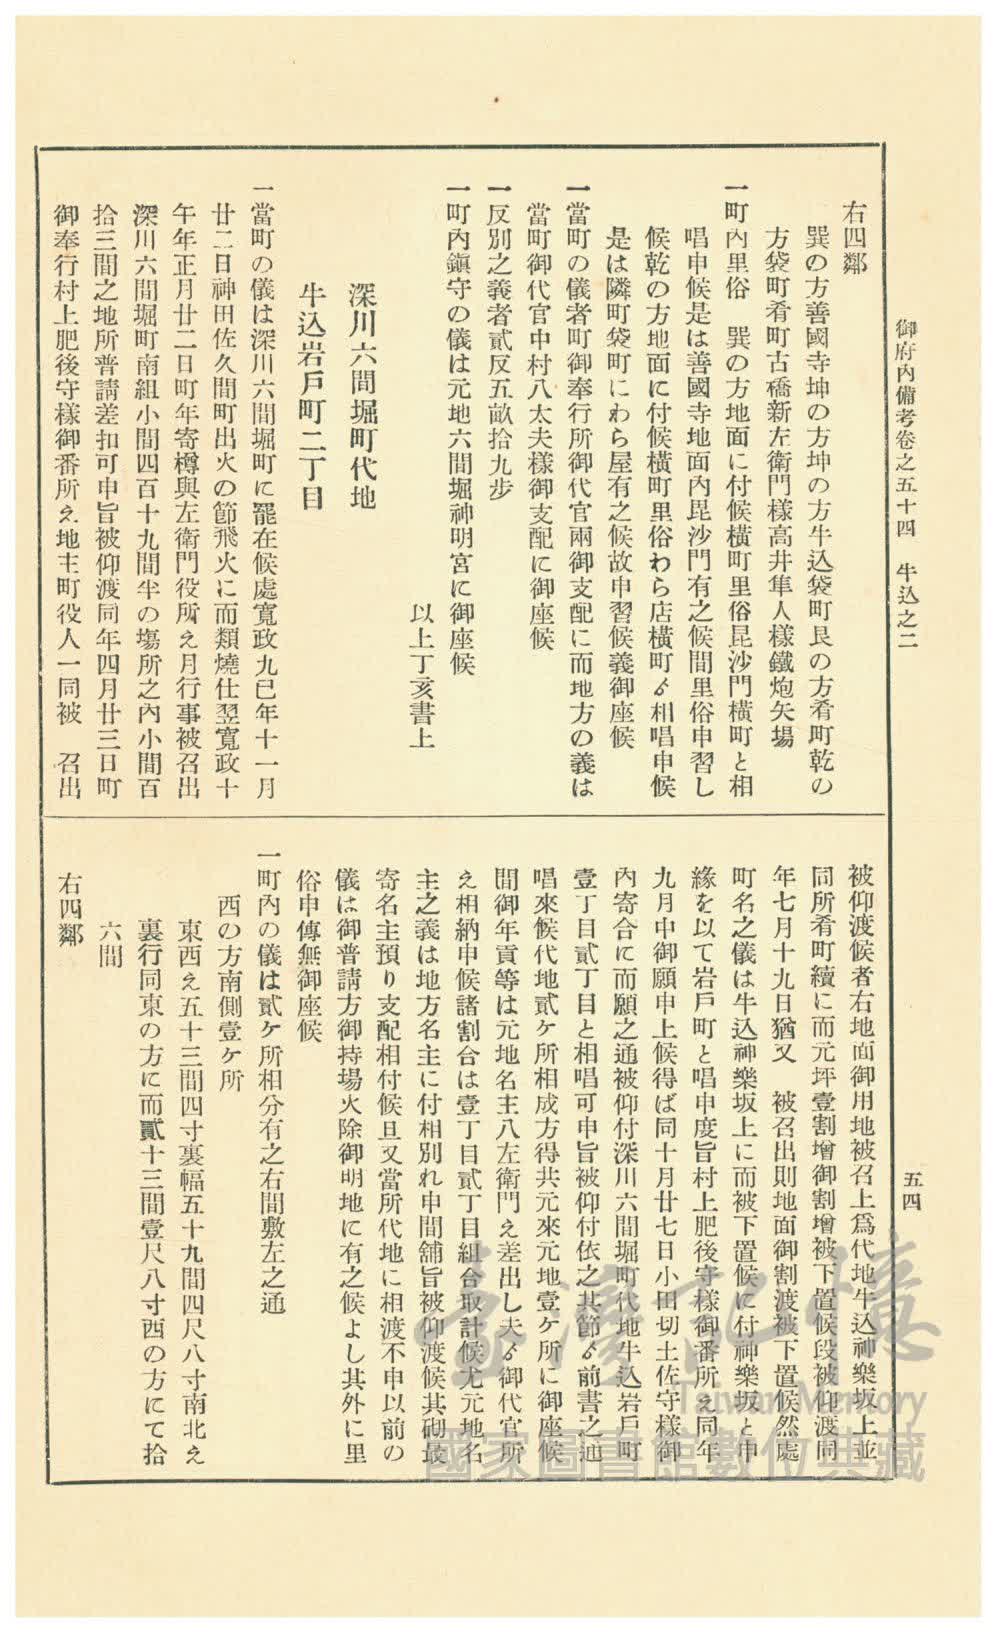 御府內備考卷之五十四　牛込之二
五四
右四鄰
巽の方善國寺坤の方坤の方牛込袋町艮の方肴町乾の
方袋町肴町古磆新左衛門樣高井隼人樣鐵炮矢場
一町內里俗　巽の方地面に付候橫町里俗昆沙門橫町と相
唱申候是は善國寺地面內毘沙門有之候間里俗申習し
候乾の方地面に付候橫町里俗わら店橫町ゟ相唱申候
是は隣町袋町にわら屋有之候故申習候義御座候
一當町の儀者町御奉行所御代官兩御支配に而地方の義は
當町御代官中村八太夫樣御支配に御座候
一反別之義者貳反五畝拾九步
一町內鎭守の儀は元地六間堀神明宮に御座候
以上丁亥書上
深川六間堀町代地
牛込岩戶町二丁目
一當町の儀は深川六間堀町に罷在候處寬政九巳年十一月
廿二日神田佐久間町出火の節飛火に而類燒仕翌寬政十
午年正月廿二日町年寄樽與左衛門役所え月行事被召出
深川六間堀町南組小間四百十九間半の塲所之內小間百
拾三間之地所普請差扣可申旨被仰渡同年四月廿三日町
御奉行村上肥後守樣御番所え地主町役人一同被　召出
被仰渡候者右地面御用地被召上爲代地牛込神樂坂上並
同所肴町續に而元坪壹割增御割增被下置候段被仰渡同
年七月十九日猶又　被召出則地面御割渡被下置候然處
町名之儀は牛込神樂坂上に而被下置候に付神樂坂と申
緣を以て岩戶町と唱申度旨村上肥後守樣御番所え同年
九月中御願申上候得ば同十月廿七日小田切土佐守樣御
內寄合に而願之通被仰付深川六間堀町代地牛込岩戶町
壹丁目貳丁目と相唱可申旨被仰付依之其節ゟ前書之通
唱來候代地貳ケ所相成方得共元來元地壹ケ所に御座候
間御年貢等は元地名主八左衛門え差出し夫ゟ御代官所
え相納申候諸割合は壹丁目貳丁目組合取計候尤元地名
主之義は地方名主に付相別れ申間舖旨被仰渡候其砌最
寄名主預り支配相付候且又當所代地に相渡不申以前の
儀は御普請方御持場火除御明地に有之候よし其外に里
俗申傳無御座候
一町內の儀は貳ケ所相分有之右間敷左之通
西の方南側壹ケ所
東西え五十三間四寸裏幅五十九間四尺八寸南北え
裏行同東の方に而貳十三間壹尺八寸西の方にて拾
六間
右四鄰
臺灣記憶
Taiwan Memory
國家圖書館數位典藏